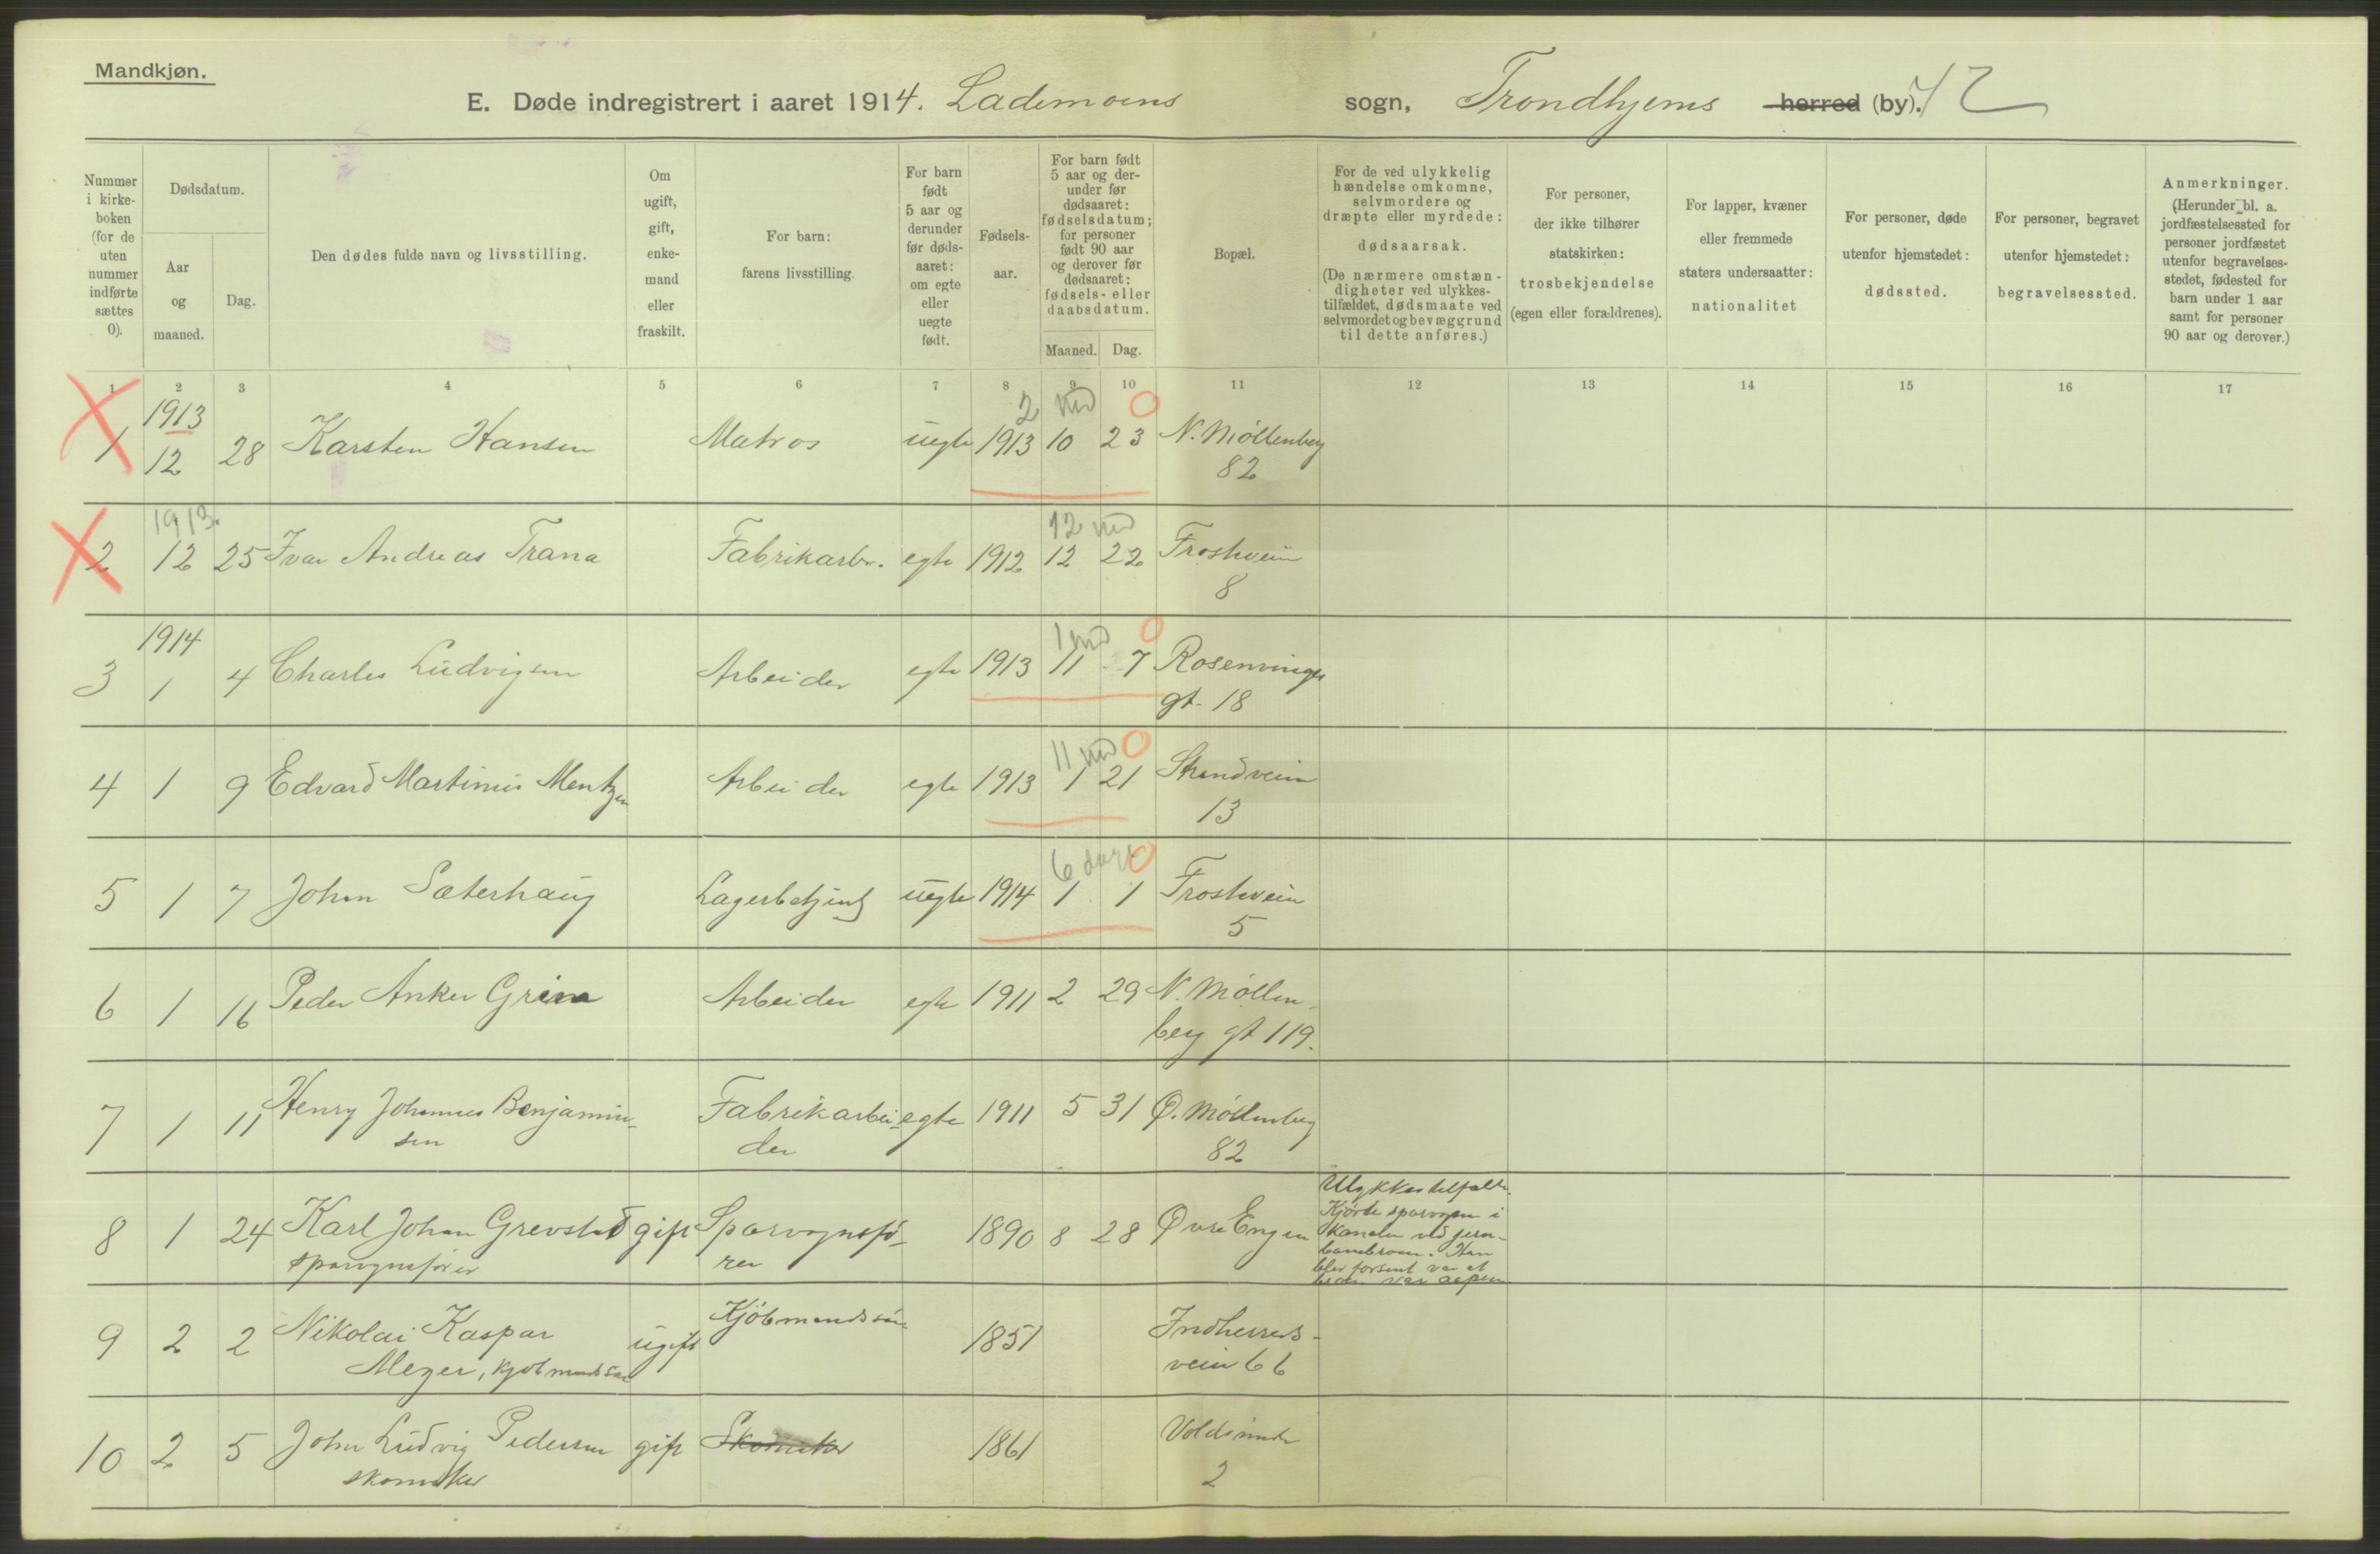 Mandkjøn.
E. Døde indregistrert i aaret 1914. Lademoens sogn, Trondhjems herred (by). 42
Nummer i kirke-boken (for de uten nummer indførte sættes 0).
Dødsdatum.
Aar og maaned.
Dag.
Den dødes fulde navn og livsstilling.
Om ugift, gift, enke-mand eller fraskilt.
For barn: farens livsstilling.
For barn født 5 aar og derunder før døds-aaret: om egte eller uegte født.
Fødsels-aar.
For barn født 5 aar og der-under før dødsaaret: fødselsdatum; for personer født 90 aar og derover før dødsaaret: fødsels- eller daabsdatum.
Maaned. Dag.
Bopæl.
For de ved ulykkelig hændelse omkomne, selvmordere og dræpte eller myrdede: dødsaarsak.
(De nærmere omstæn-digheter ved ulykkes-tilfældet, dødsmaate ved selvmordet og bevæggrund til dette anføres.)
For personer, der ikke tilhører statskirken: trosbekjendelse (egen eller forældrenes).
For lapper, kvæner eller fremmede staters undersaatter: nationalitet
For personer, døde utenfor hjemstedet: dødssted.
For personer, begravet utenfor hjemstedet: begravelsessted.
Anmerkninger.
(Herunder bl. a. jordfæstelsessted for personer jordfæstet utenfor begravelses-stedet, fødested for barn under 1 aar samt for personer 90 aar og derover.)
1 2 3 4 5 6 7 8 9 10 11 12 13 14 15 16 17
1913 2 md 0
1 12 28 Karsten Hansen Matros uegte 1913 10 23 N. Möllenberg
82
1913. 12 md
2 12 25 Ivar Andreas Trana Fabrikarb. egte 1912 12 22 Frostavein
8
1914 1 md 0
3 1 4 Charles Ludvigsen Arbeider egte 1913 11 7 Rosenvinges
gt. 18
11 md 0
4 1 9 Edvard Martinus Mentzen Arbeider egte 1913 1 21 Strandveien
13
6 dage 0
5 1 7 Johan Sæterhaug Lagerbetjent uegte 1914 1 1 Frostavein
5
6 1 16 Peder Anker Grim Arbeider egte 1911 2 29 N. Möllen-
berg gt 119.
7 1 11 Henry Johannes Benjamin- Fabrikarbei- egte 1911 5 31 Ø. Möllenberg
sen der 82
8 1 24 Karl Johan Grevstad gift Sporvognsfö- 1890 8 28 Øvre Engen
sporvognsfører rer
Ulykkestilfælde.
Kjörte sporvogn i
Kanalen ved jern-
banebroen. Han
blev forsent var at
broen var aapen
9 2 2 Nikolai Kaspar ugift Kjöbmandssön 1851 Indherreds-
Meyer, Kjöbmandssön veien 66
10 2 5 John Ludvig Pedersen gift Skomaker 1861 Voldsminde
skomaker 2